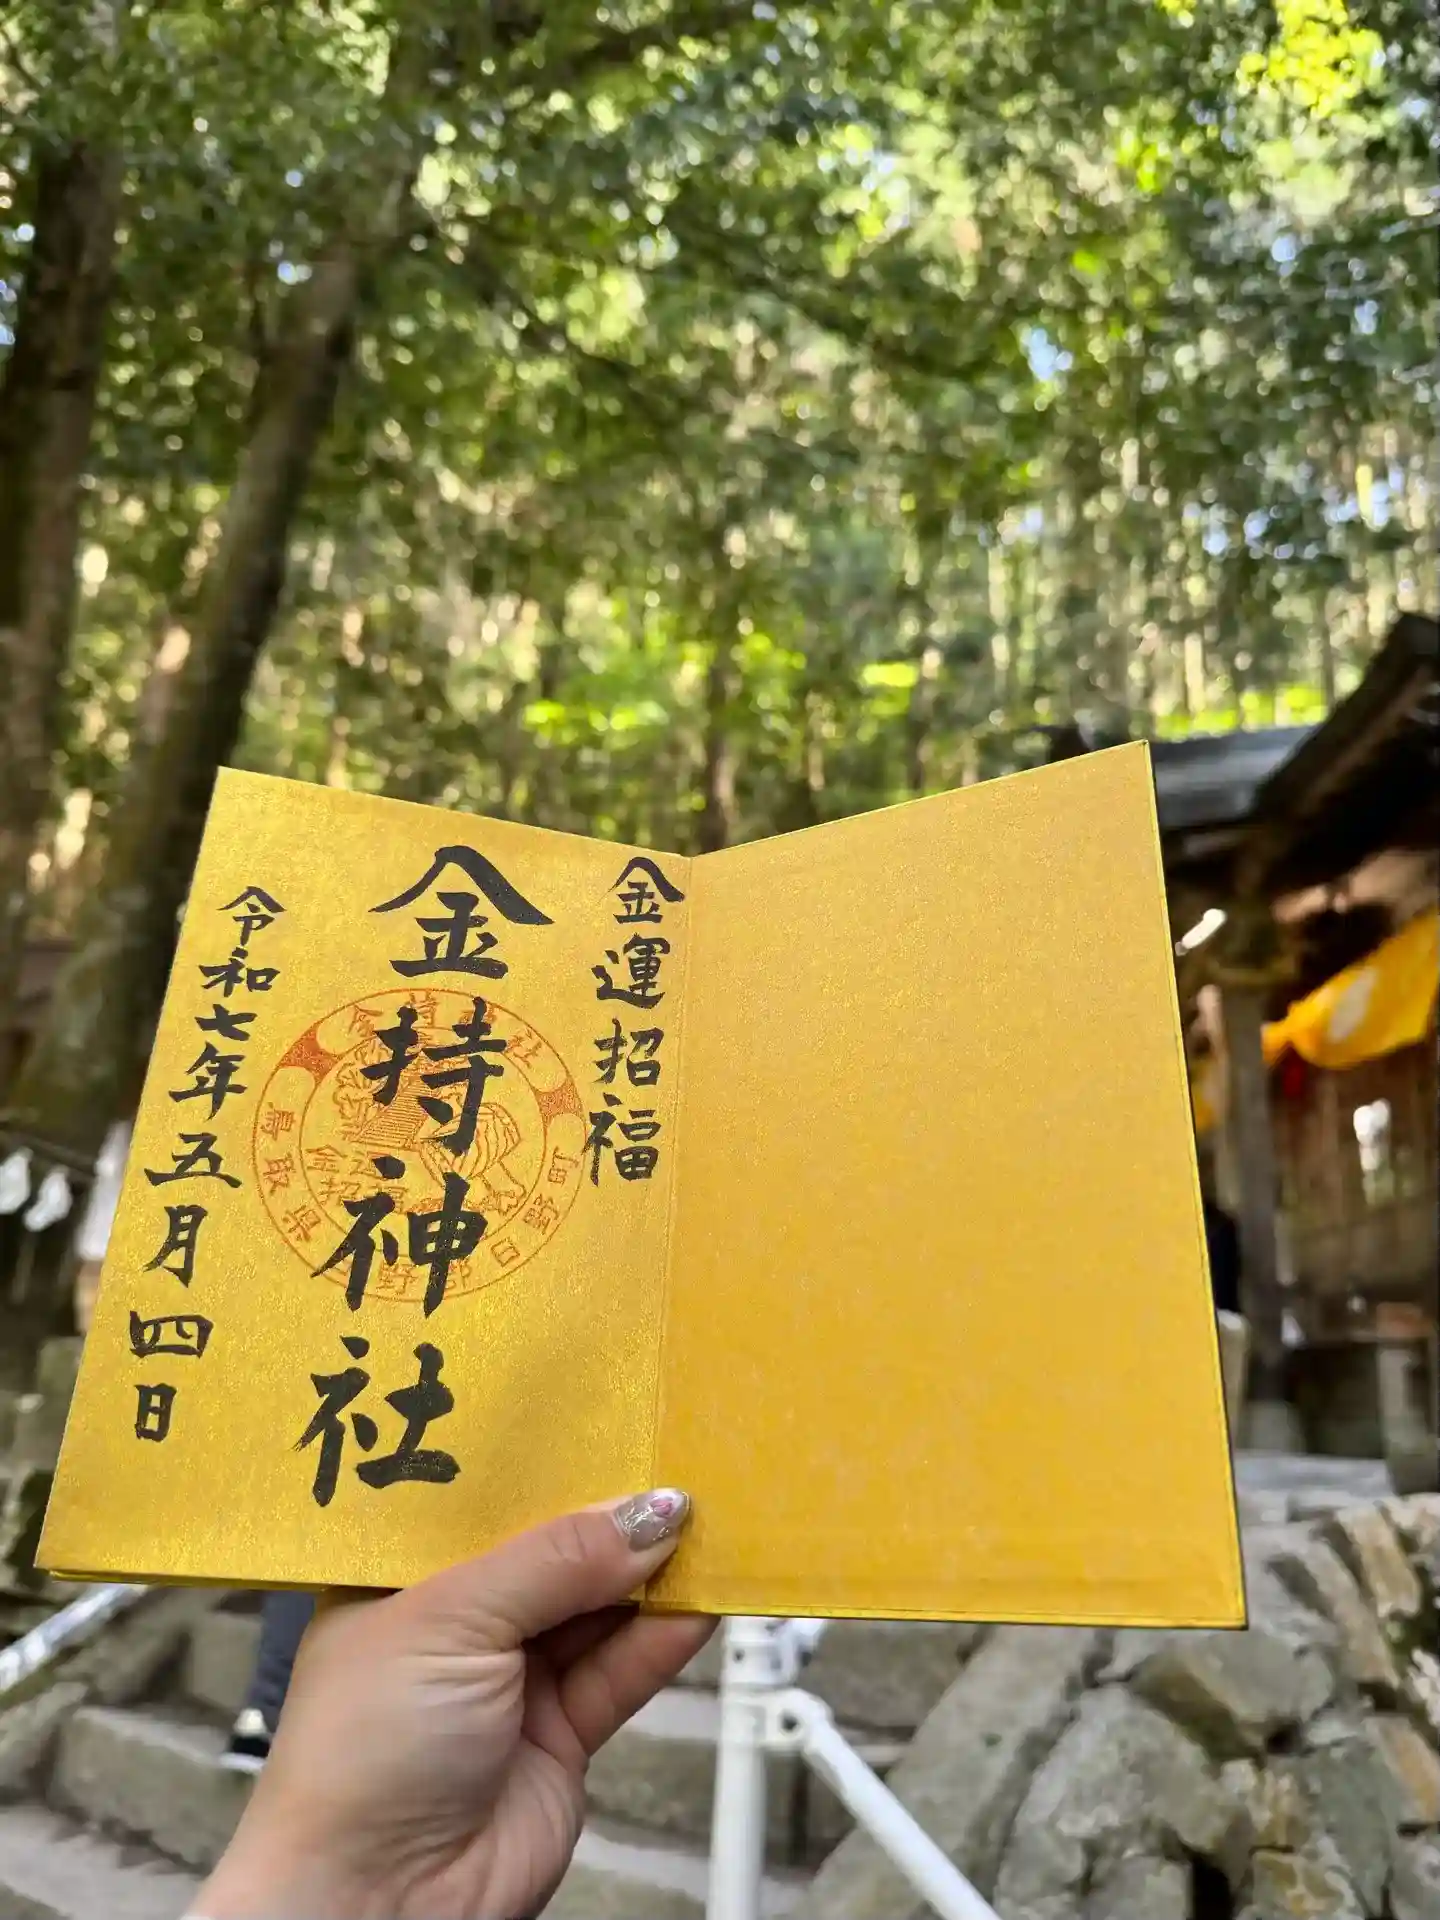 金運招福
金持神社
令和七年五月四日
金持神社
鳥取県日野郡日野町
金運
招福